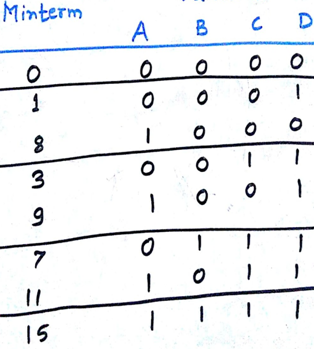 Minterm A B C D
0 0 0 0 0
1 0 0 0 1
8 1 0 0 0
3 0 0 1 1
9 1 0 0 1
7 0 1 1 1
11 1 0 1 1
15 1 1 1 1